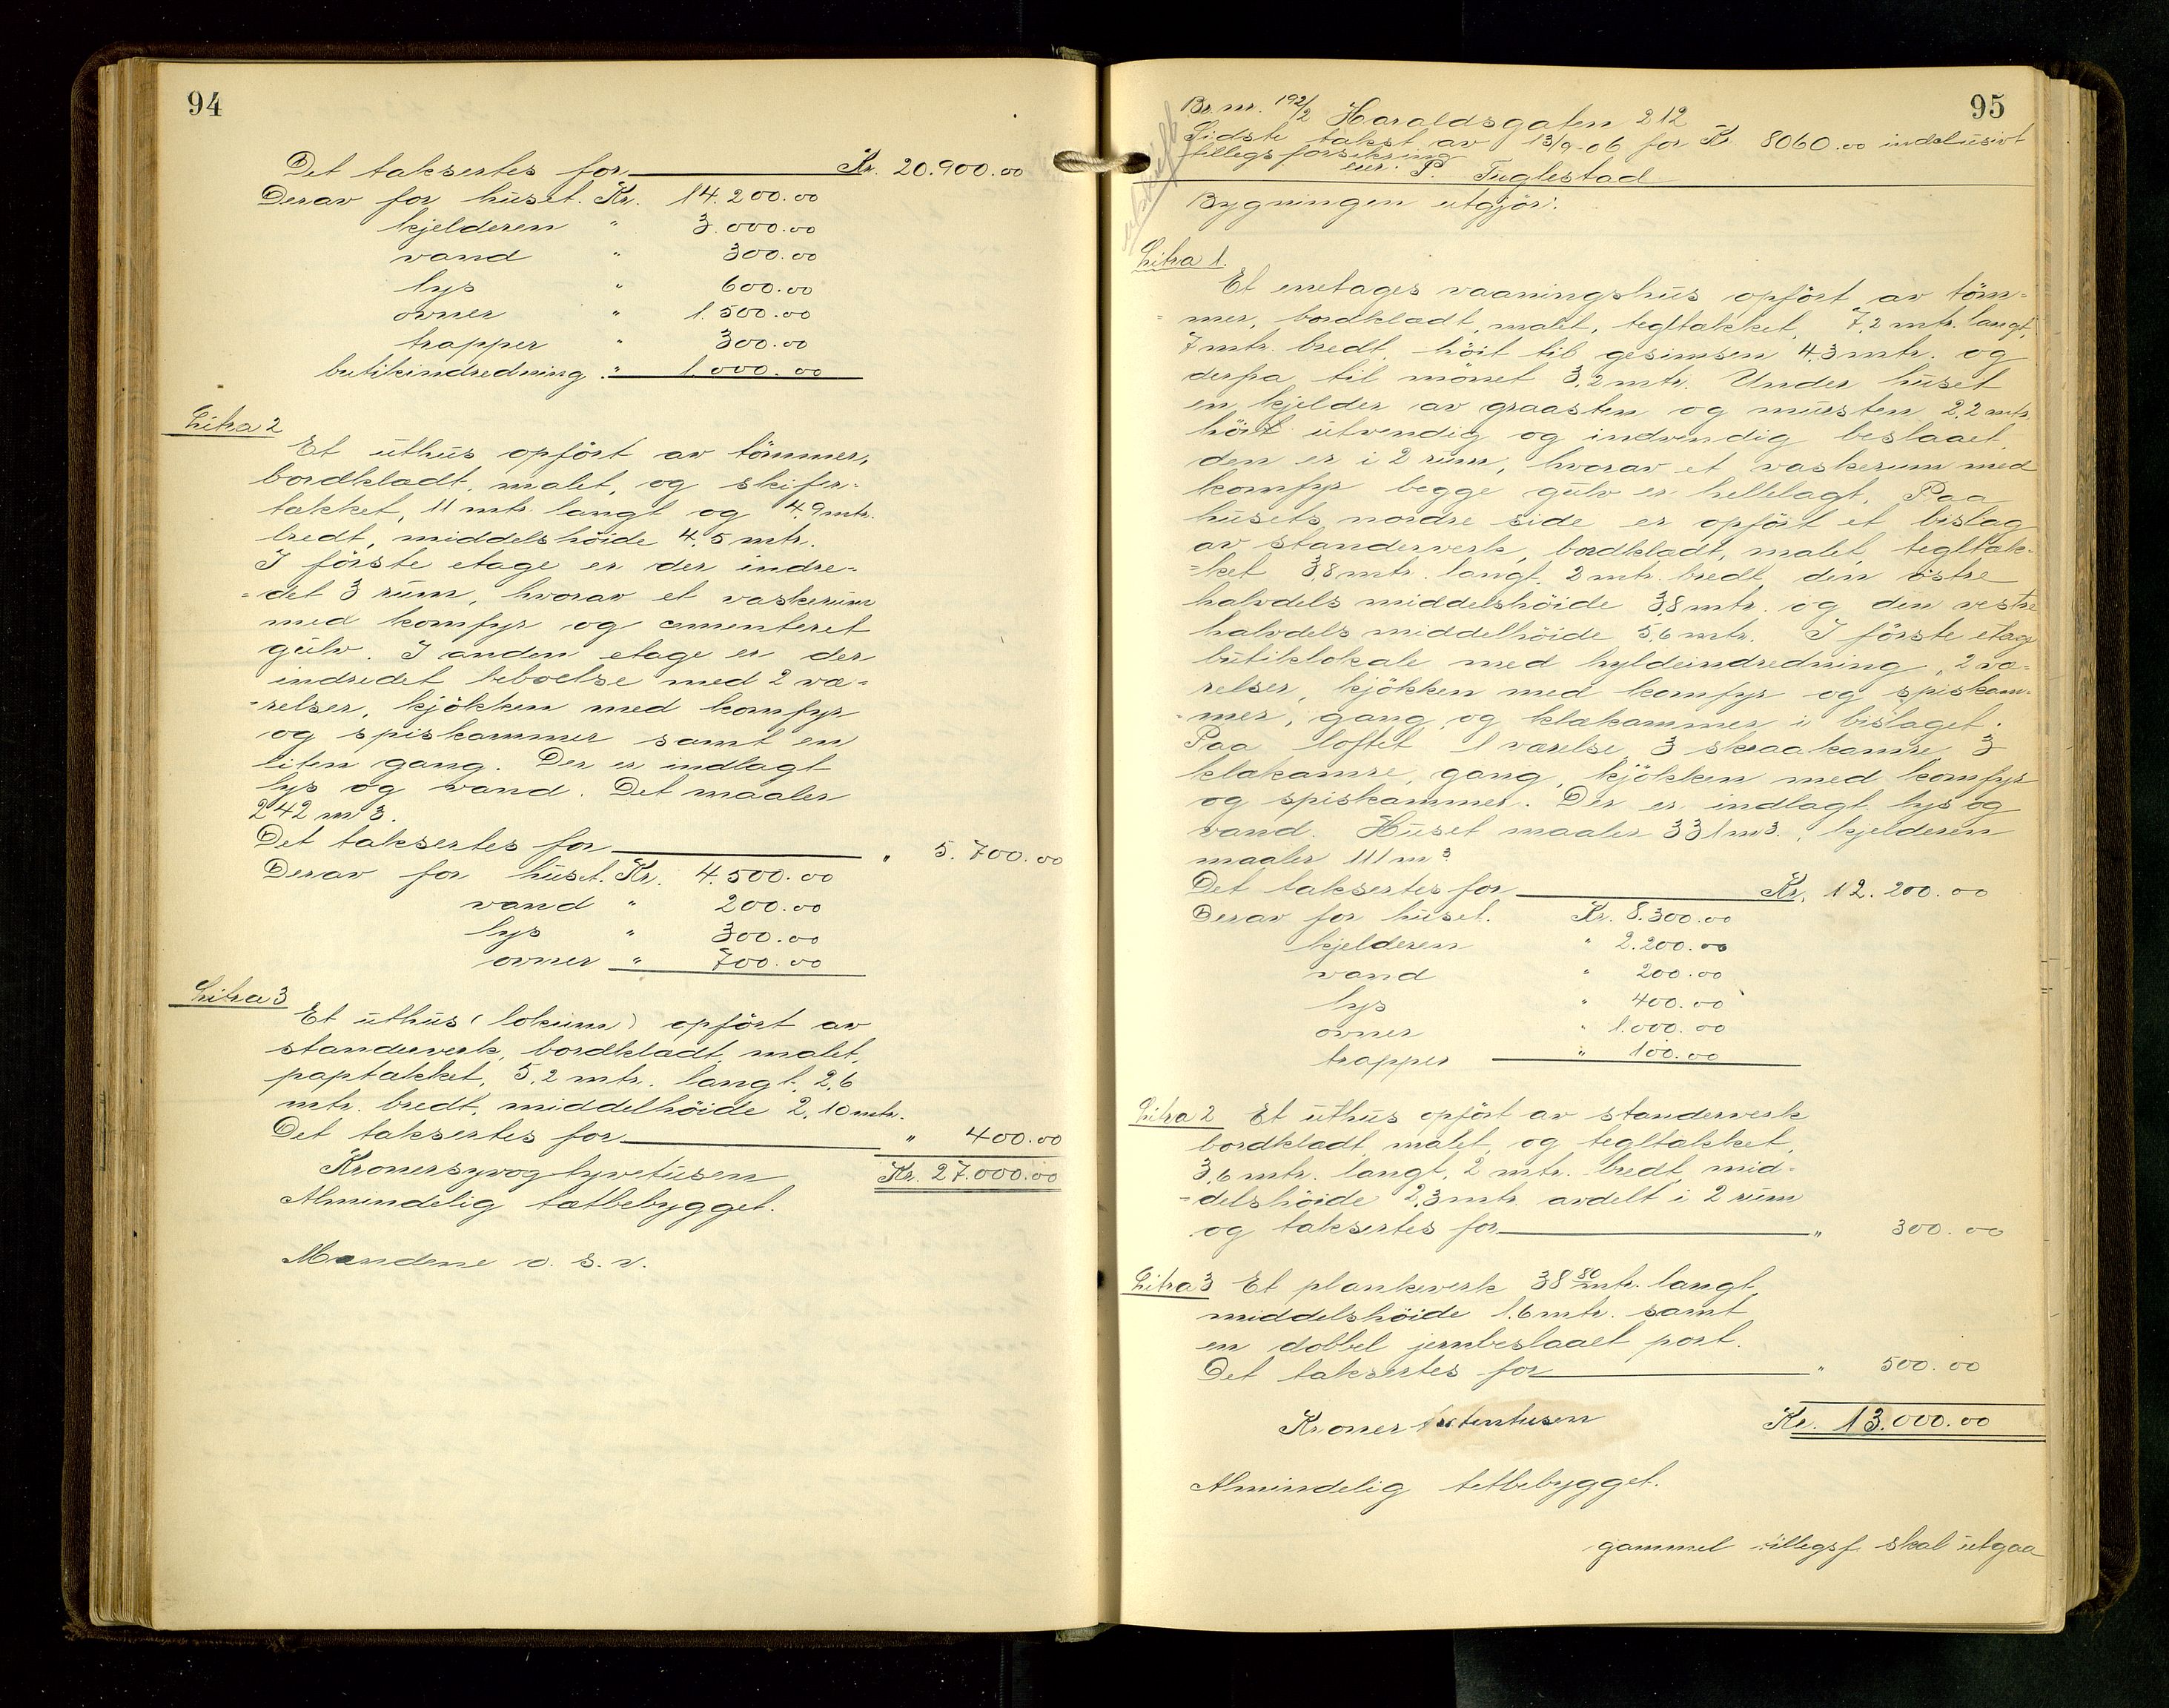 94
Det taksertes for Kr. 20.900.00
Derav for huset. Kr. 14.200.00
kjelderen " 3.000.00
vand " 300.00
lys " 600.00
ovner " 1.500.00
trapper " 300.00
butikindredning " 1.000.00
Litra 2
Et uthus opført av tømmer,
bordklædt, malet, og skifer-
tækket, 11 mtr. langt og 4.9 mtr.
bredt, middelshöide 4.5 mtr.
I förste etage er der indre-
=det 3 rum, hvorav et vaskerum
med komfyr og cementeret
gulv. I anden etage er der
indredet beboelse med 2 væ-
-relser, kjökken med komfyr
og spiskammer samt en
liten gang. Der er indlagt
lys og vand. Det maaler
242 m3.
Det taksertes for " 5.700.00
Derav for huset. Kr. 4.500.00
vand " 200.00
lys " 300.00
ovner " 700.00
Litra 3
Et uthus (lokum) opført av
standerverk, bordklædt, malet,
paptækket, 5.2 mtr. langt, 2.6
mtr. bredt, middelhöide 2.10 mtr.
Det taksertes for " 400.00
Kroner syvogtyvetusen Kr. 27.000.00
Almindelig tætbebygget.
Mændene o. s. v.
95
Br. nr. 192/2 Haraldsgaten 212
Sidste takst av 13/9-06 for Kr. 8060.00 indclusivt
tillegsforsikring
eier. P. Fuglestad
Bygningen utgjör:
Litra 1.
Et enetages vaaningshus opfört av töm-
=mer, bordklædt, malet, tegltækket, 7.2 mtr. langt,
7 mtr. bredt, höit til gesimsen 4.3 mtr. og
derfra til mönet 3.2 mtr. Under huset
en kjelder av graasten og mursten 2.2 mtr.
höit utvendig og indvendig beslaaet,
den er i 2 rum, hvorav et vaskerum med
komfyr begge gulv er hellelagt. Paa
husets nordre side er opfört et bislag
av standerverk, bordklædt, malet, tegltæk-
=ket 3.8 mtr. langt, 2 mtr. bredt, den östre
halvdels middelshöide 3.8 mtr. og den vestre
halvdels middelhöide 5.6 mtr. I förste etag
butiklokale med hyldeindredning, 2 væ-
relser, kjökken med komfyr og spiskam-
-mer, gang og klækammer i bislaget.
Paa loftet 1 værelse, 3 skraakamre, 3
klækamre, gang, kjökken med komfyr
og spiskammer. Der er indlagt lys og
vand. Huset maaler 331 m3., kjelderen
maaler 111 m3
Det taksertes for Kr. 12.200.00
Derav for huset. Kr. 8.300.00
kjelderen " 2.200.00
vand " 200.00
lys " 400.00
ovner " 1.000.00
trapper " 100.00
Litra 2 Et uthus opfört av standerverk
bordklædt, malet, og tegltækket,
3.6 mtr. langt, 2 mtr. bredt, mid-
-delshöide 2.3 mtr. avdelt i 2 rum
og taksertes for " 300.00
Litra 3 Et plankeverk 38 80 mtr. langt,
middelshöide 1.6 mtr. samt
en dobbel jernbeslaaet port.
Det taksertes for " 500.00
Kroner trettentusen Kr. 13.000.00
Almindelig tetbebygget.
gammel tillegsf. skal utgaa